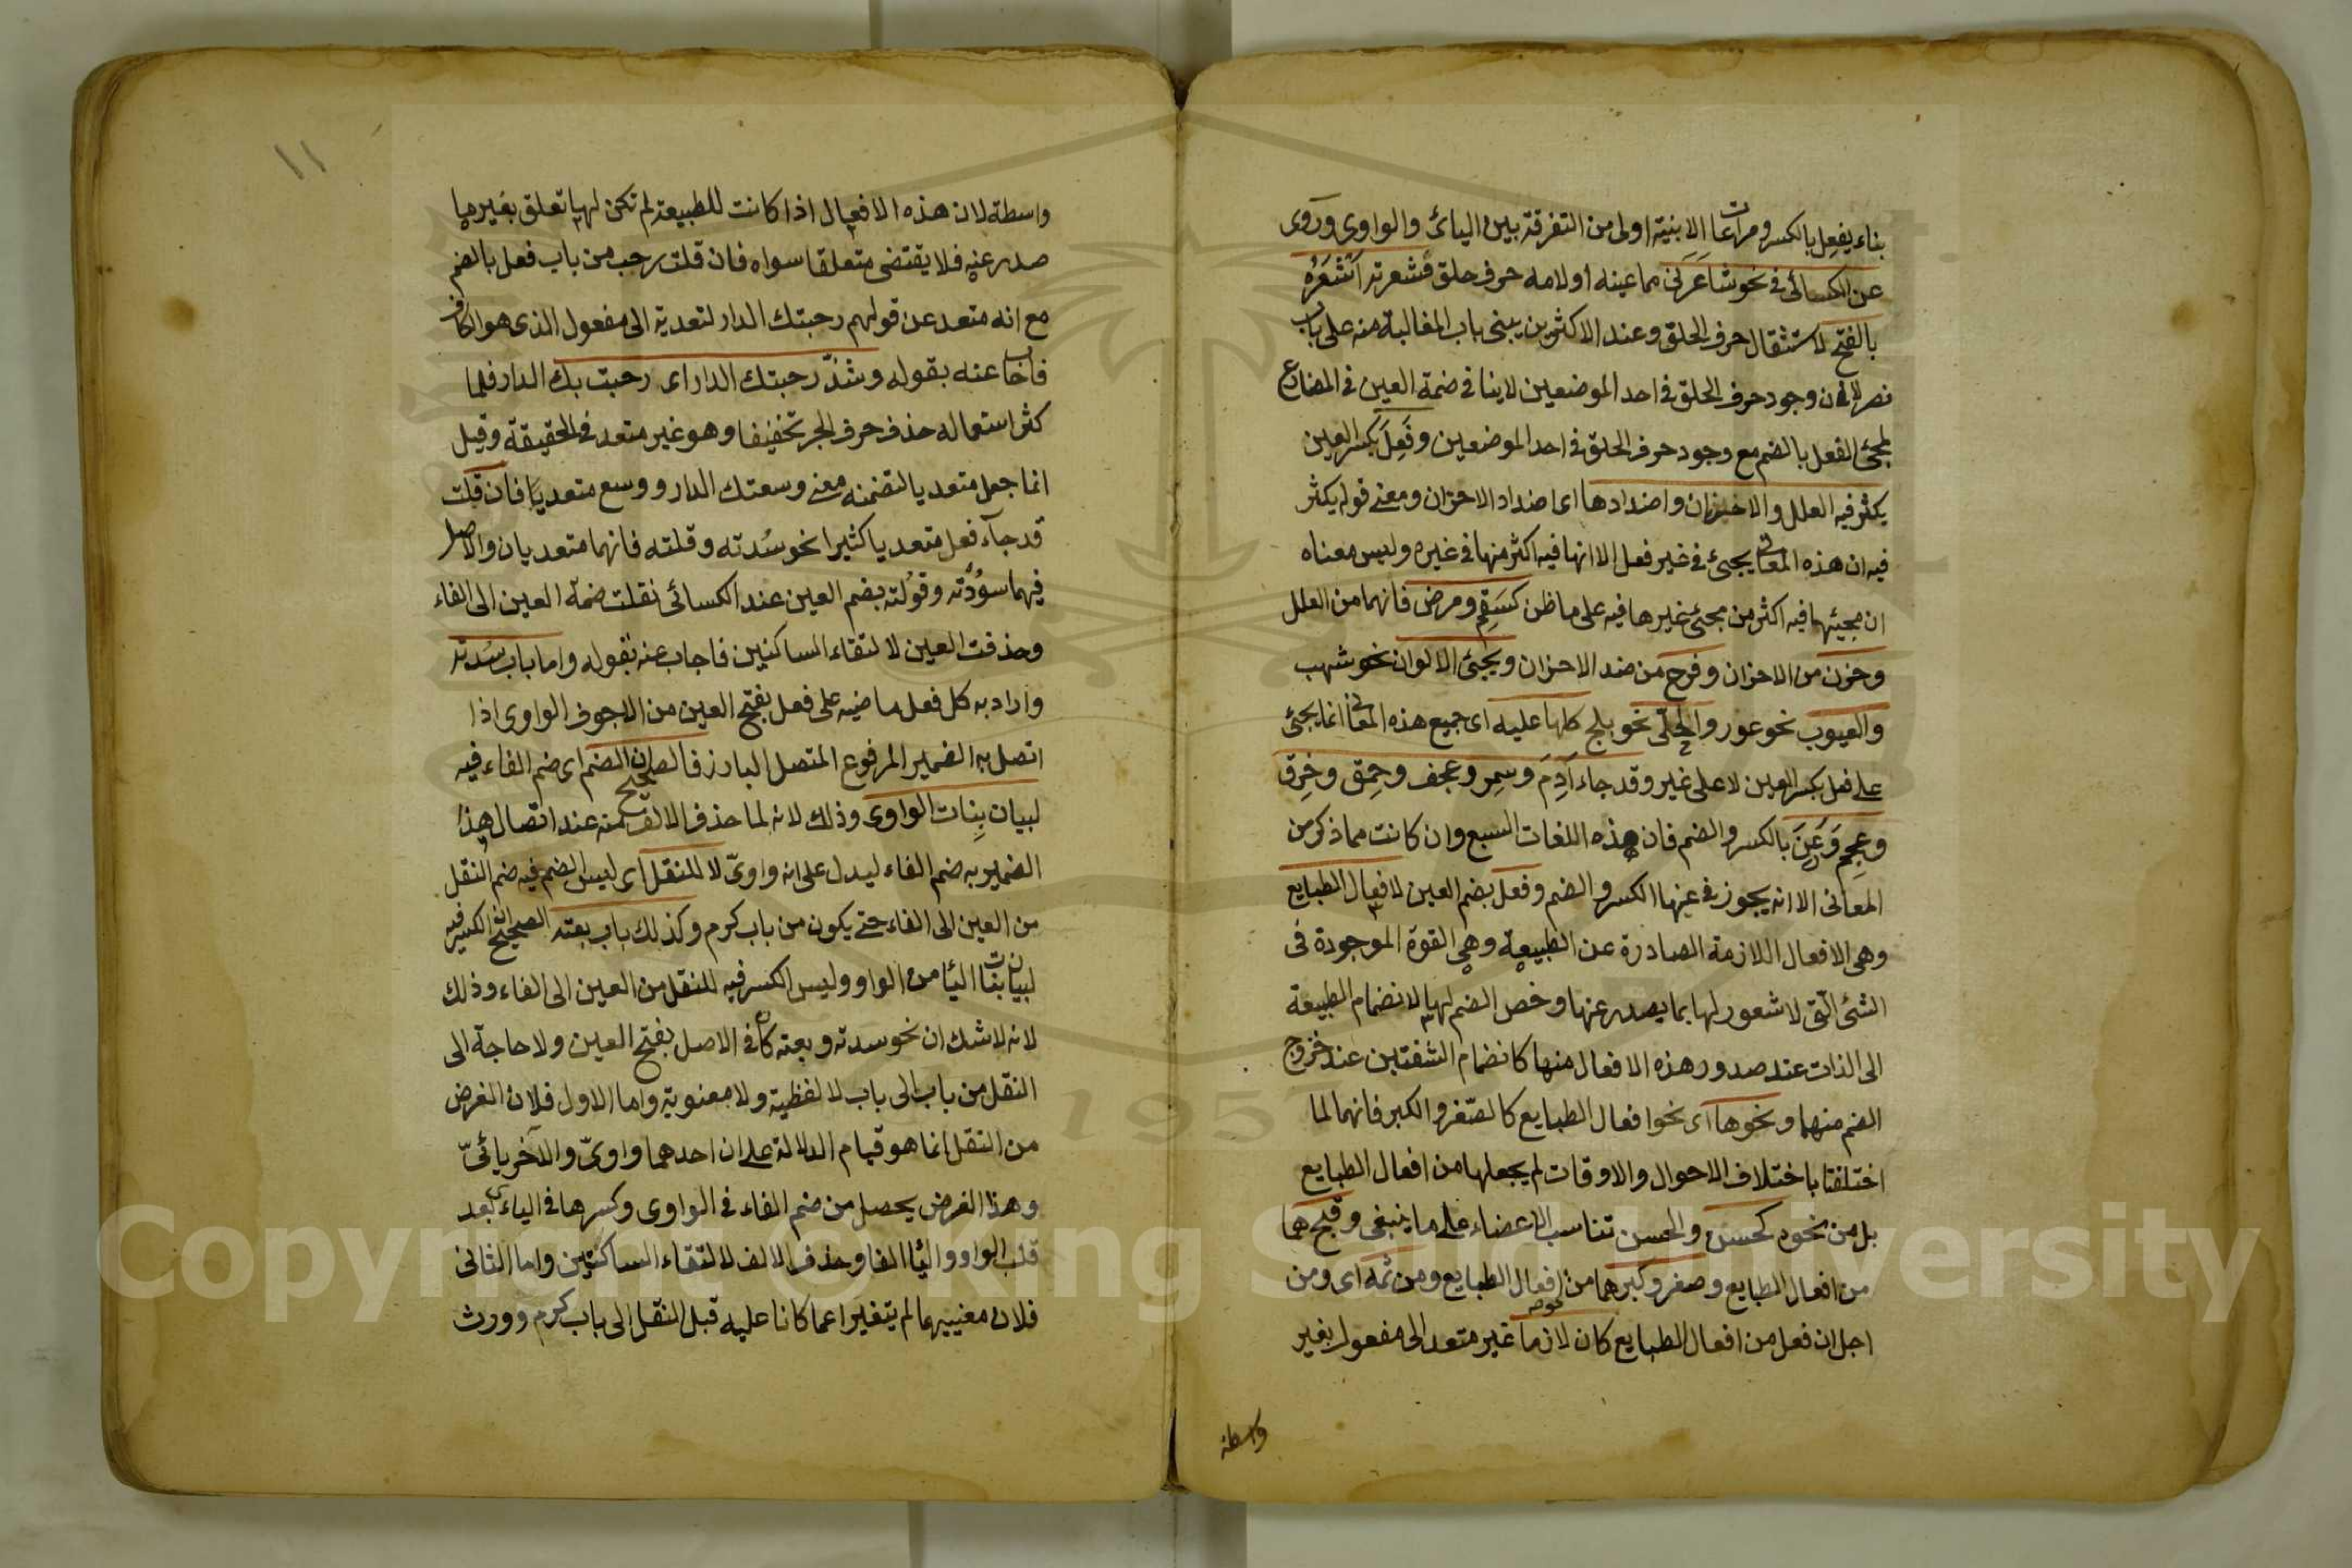 بناء يفعِل بالكسر ومراعات الابنية اولى من التفرقة بين اليائى والواوى وروى
عن الكسائى فى نحو شاعَرَنى مما عينه او لامه حرف حلق فشعرته اَشْعَرُه
بالفتح لاستثقال حرف الحلق وعند الاكثرين يبنى باب المغالبة منه على باب
نصر لان وجود حرف الحلق فى احد الموضعين لاينافى ضمة العين فى المضارع
لمجئ الفعل بالضم مع وجود حرف الحلق فى احد الموضعين وفَعِلَ بكسر العين
يكثر فيه العلل والاحزان واضدادها اى اضداد الاحزان ومعنے قوله يكثر
فيه ان هذه المعانى يجئ فى غير فعل الا انها فيه اكثر منها فى غيره وليس معناه
ان مجيئها فيه اكثر من مجئ غيرها فيه على ما ظن كسَقِم ومرض فانهما من العلل
وحزن من الاحزان وفرح من ضد الاحزان ويجئ الالوان نحو شهب
والعيوب نحو عور والحلى نحو بلج كلها عليه اى جميع هذه المعانى انما يجئ
على فعل بكسر العين لا على غير وقد جاء آدِمَ وسمِر وعجف وحِمق وخِرق
وعجِم وَرَعِنَ بالكسر والضم فان هذه اللغات السبع وان كانت مما ذكر من
المعانى الا انه يجوز فى عينها الكسر والضم وفعل بضم العين لافعال الطبايع
وهى الافعال اللازمة الصادرة عن الطبيعة وهى القوة الموجودة فى
الشئ الّتى لا شعور لها بما يصدر عنها وخص الضم لها لانضمام الطبيعة
الى الذات عند صدور هذه الافعال منها كانضمام الشفتين عند خروج
الضم منهما ونحوها اى نحو افعال الطبايع كالصّغر والكبر فانهما لما
اختلفتا باختلاف الاحوال والاوقات لم يجعلها من افعال الطبايع
بل من نحوه كحسن والحسن تناسب الاعضاء على ما ينبغى وقبح هما
من افعال الطبايع وصغر وكبر هما من نحو افعال الطبايع ومن ثمه اى ومن
اجل ان فعل من افعال الطبايع كان لازما غير متعد الى مفعول بغير
واسطة
١١
واسطة لان هذه الافعال اذا كانت للطبيعة لم تكن لها تعلق بغير ما
صدر عنه فلا يقتضى متعلقا سواه فان قلت رحب من باب فعل بالضم
مع انه متعد عن قولهم رحبتك الدار لتعديه الى مفعول الذى هو الكاف
فاجاب عنه بقوله وشذّ رحبتك الدار اى رحبت بك الدار فلما
كثر استعماله حذف حرف الجر تخفيفا وهو غير متعد فى الحقيقة وقيل
انما جعل متعديا لتضمنه معنے وسعتك الدار ووسع متعديا فان قلت
قد جآء فعل متعديا كثيرا نحو سُدته وقلته فانهما متعديان والاصل
فيهما سوُدته وقوُلته بضم العين عند الكسائى نقلت ضمة العين الى الفاء
وحذفت العين لالتقاء الساكنين فاجاب عنه بقوله واما باب سُدته
واراد به كل فعل ماضيه على فعل بفتح العين من الاجوف الواوى اذا
اتصل به الضمير المرفوع المتصل البارز فالصحيح ان الضم اى ضم الفاء فيه
لبيان بِنات الواوى وذلك لانه لما حذف الالف منه عند اتصال هذا
الضمير به ضم الفاء ليدل على انه واوىّ لا للنقل اى ليس الضم فيه ضم النقل
من العين الى الفاء حتے يكون من باب كرم وكذلك باب بعته الصحيح ان الكسر فيه
لبيان بنات اليا من الواو وليس الكسر فيه للنقل من العين الى الفاء وذلك
لانه لاشك ان نحو سدته وبعته كان فى الاصل بفتح العين ولا حاجة الى
النقل من باب الى باب لا لفظية ولا معنوية واما الاول فلان الغرض
من النقل انما هو قيام الدلالة على ان احدهما واوىّ والآخر يائىّ
وهذا الغرض يحصل من ضم الفاء فى الواوى وكسرها فى اليائى بعد
قلب الواو واليا الفا وحذف الالف لالتقاء الساكنين واما الثانى
فلان معنييهما لم يتغيرا عما كانا عليه قبل النقل الى باب كرم وورث
Copyright © King Saud University